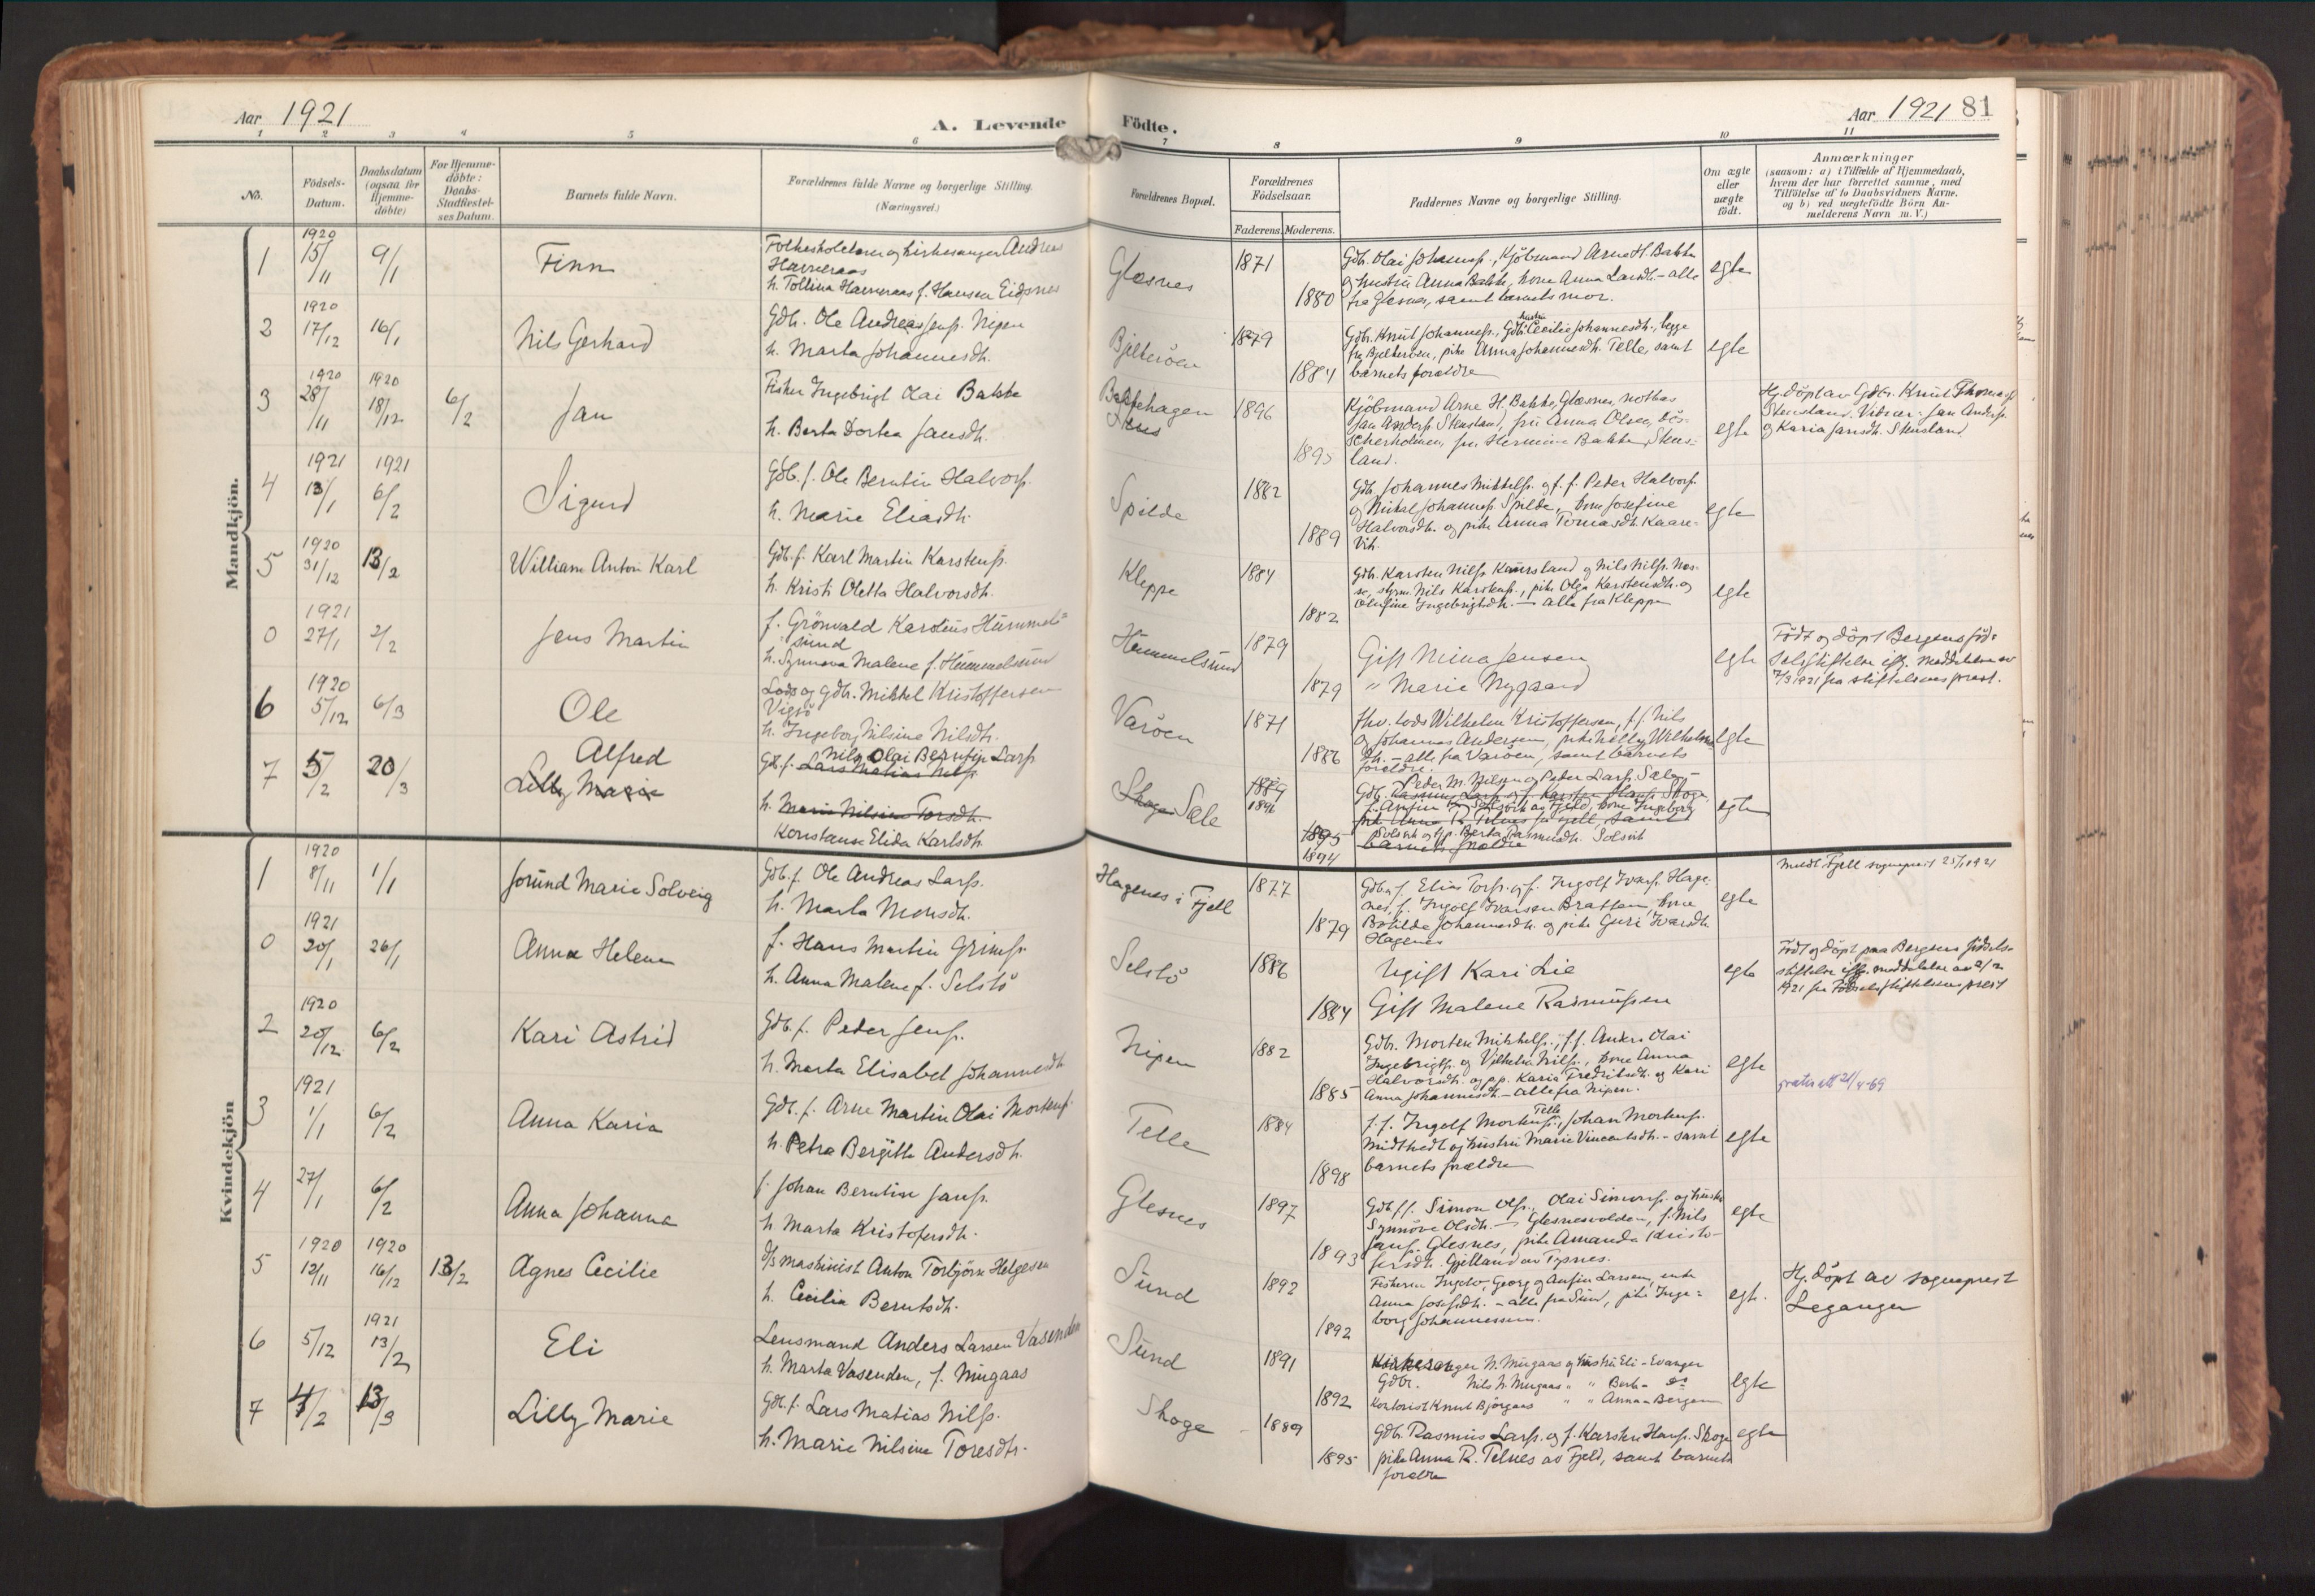 Aar 1921
A. Levende Födte.
Aar 1921 81
1 2 3 4 5 6 7 8 9 10 11
No.
Födsels-
Datum.
Daabsdatum
(ogsaa for
Hjemme-
döbte)
For Hjemme-
döbte:
Daabs-
Stadfæstel-
ses Datum.
Barnets fulde Navn.
Forældrenes fulde Navne og borgerlige Stilling.
(Næringsvei.)
Forældrenes Bopæl.
Forældrenes
Födselsaar.
Faderens. Moderens.
Faddernes Navne og borgerlige Stilling.
Om ægte
eller
uægte
födt.
Anmærkninger
(saasom: a) i Tilfælde af Hjemmedaab,
hvem der har forrettet samme, med
Tilföielse af to Daabsvidners Navne.
og b) ved uægtefödte Börn An-
melderens Navn m. V.)
Mandkjön.
1
1920
15/11
9/1
Finn
Folkeskolelærer og kirkesanger Andreas
Havneraas
h. Tollina Havneraas f. Hansen Eidesnes
Glesnes
1871
1880
Gdb. Olai Johanness., Kjöbmand Arne H. Bakke
og hustru Anna Bakke, kone Anna Larsdt. - alle
fra Glesnes, samt barnets mor.
egte
2
1920
17/12
16/1
Nils Gerhard
Gdb. Ole Andreas Jenss. Nipen
h. Marta Johannesdh.
Bjelteröen
1879
1884
hustru
Gdb. Knut Johanness., Gdb. Cecilie Johannesdh., begge
fra Bjelteröen, pike Anna Johannesdh. Telle, samt
barnets forældre
egte
3
1920
28/11
1920
18/12
6/2
Jan
Fisker Ingebrigt Olai Bakke
h. Berta Dortea Jansdh.
Bakkehagen
1896
1895
Kjöbmand Arne H. Bakke, Glæsnes, notbas
Jan Anderss. Stensland, fru Anna Olsen, Dös-
scherholmen, fru Hermine Bakke, Stens-
land.
egte
Hj. döpt av Gdbr. Knut Thomass.
Stensland. Vitner: Jan Anderss.
og Karia Jansdh. Stensland.
4
1921
13/1
1921
6/2
Sigurd
Gdb. f. Ole Berntin Halvors.
h. Marie Eliasdh.
Spilde
1882
1889
Gdb. Johannes Mikkelss. og f. f. Peder Halvors.
og Mikal Johanness. Spilde, kone Josefine
Halvorsdh. og pike Anna Tomasdh. Kaare-
vik.
egte
5
1920
31/12
13/2
William Anton Karl
Gdb. f. Karl Martin Karstenss.
h. Kristi Oletta Halvorsdh.
Kleppe
1884
1882
Gdb. Karsten Nilss. Kaursland og Nils Nilss. Nes-
se, styrm. Nils Karstenss., pike Olga Karstensdh. og
Olufine Ingebrigtsdh. - alle fra Kleppe
egte
0
1921
27/1
2/2
Jens Martin
f. Grönvald Karolius Hummel-
sund
h. Synnöva Malene f. Hummelsund
Hummelsund
1879
1879
Gift Nina Jensen
" Marie Nygaard
egte
Födt og döpt Bergens föd-
selsstiftelse iflg. meddelelse av
7/3 1921 fra stiftelsens prest.
6
1920
5/12
6/3
Ole
Lods og gdb. Mikkel Kristoffersen
Vigsö
h. Ingeborg Nilsine Nilsdh.
Varöen
1871
1886
Fhv. lods Wilhelm Kristoffersen, f. f. Nils
og Johannes Andersen, pike Nelly Wilhelms-
dh. - alle fra Varöen, samt barnets
forældre.
egte
7
5/2
20/3
Alfred
Lilly Marie
Nils Olai Berntin Larss.
Gdb. f. Lars Matias Nilss.
h. Marie Nilsine Torsdh.
Konstanse Elida Karlsdh.
Skoge Sæle
1889
1896
1895
1894
Peder M. Nilsen og Peder Larss. Sæle,
Gdb. Rasmus Larss. og f. Karsten Hanss. Skoge
pike Anna R. Telnes fra Fjell, samt
Solsvik og pp. Berta Rasmusdh. Solsvik
barnets forældre
egte
Kvindekjön
1
1920
8/11
1/1
Jorund Marie Solveig
Gdb. f. Ole Andreas Larss.
h. Marta Monsdh.
Hagenes i Fjell
1877
1879
Gdb. og f. Elias Torss. og f. Ingolf Ivarss. Hage-
nes, f. Ingolf Ivarsen Bratten, kone
Botilda Johannesdh. og pike Guri Ivarsdh.
Hagenes
egte
meldt Fjell sogneprest 25/1 1921
0
1921
20/1
26/1
Anna Helene
f. Hans Martin Grimss.
h. Anna Malene f. Selstö
Selstö
1886
1884
Ugift Kari Lie
Gift Malene Rasmussen
egte
Födt og döpt paa Bergens födsels-
stiftelse iflg. meddelelse av 2/2
1921 fra Födselsstiftelsens prest
2
1920
20/12
6/2
Kari Astrid
Gdb. f. Peder Jenss.
h. Marta Elisabet Johannesdh.
Nipen
1882
1885
Gdb. Morten Mikkelss., f. f. Anders Olai
Ingebrigtss. og Vilhelm Nilss., kone Anna
Halvorsdh. og pp. Karia Fredriksdh. og Kari
Anna Johannesdh. - alle fra Nipen.
egte
21/4-69
3
1921
1/1
6/2
Anna Karia
Gdb. f. Arne Martin Olai Mortenss.
h. Petra Bergitte Andersdh.
Telle
1884
1898
Telle
f. f. Ingolf Mortenss., Johan Mortenss.
Midttvedt og hustru Marie Vincentsdh. - samt
barnets forældre
egte
4
27/1
6/2
Anna Johanna
f. Johan Berntin Janss.
h. Marta Kristofersdh.
Glesnes
1897
1893
Gdb. f. f. Simon Olss., Olai Simonss. og hustru
Synnöve Olsdh. - Glesnesvolden, f. Nils
Janss. Glesnes, pike Amanda Kristo-
fersdh. Gjelland av Tysnes.
egte
5
1920
12/11
1920
16/12
13/2
Agnes Cecilie
d/s maskinist Anton Torbjörn Helgesen
h. Cecilia Berntsdh.
Sund
1892
1892
Fiskerne Ingolv, Georg og Anfin Larsen, enke
Anna Josefsdh. - alle fra Sund, pike Inge-
borg Johannessen.
egte.
Hj. döpt av sogneprest
Leganger
6
5/12
1921
13/2
Eli
Lensmand Anders Larsen Vasenden
h. Marta Vasenden, f. Mingaas
Sund
1891
1892
Kirkesanger N. Mingaas og hustru Eli - Evanger
Gdbr. Nils N. Mingaas " " Berta - do
Kontorist Knut Björgaas " " Anna - Bergen
egte
7
4/2
13/3
Lilly Marie
Gdb. f. Lars Matias Nilss.
h. Marie Nilsine Toresdtr.
Skoge
1889
1895
Gdb. Rasmus Larss. og f. Karsten Hanss. Skoge
pike Anna R. Telnes av Fjeld, samt barnets
foreldre
egte